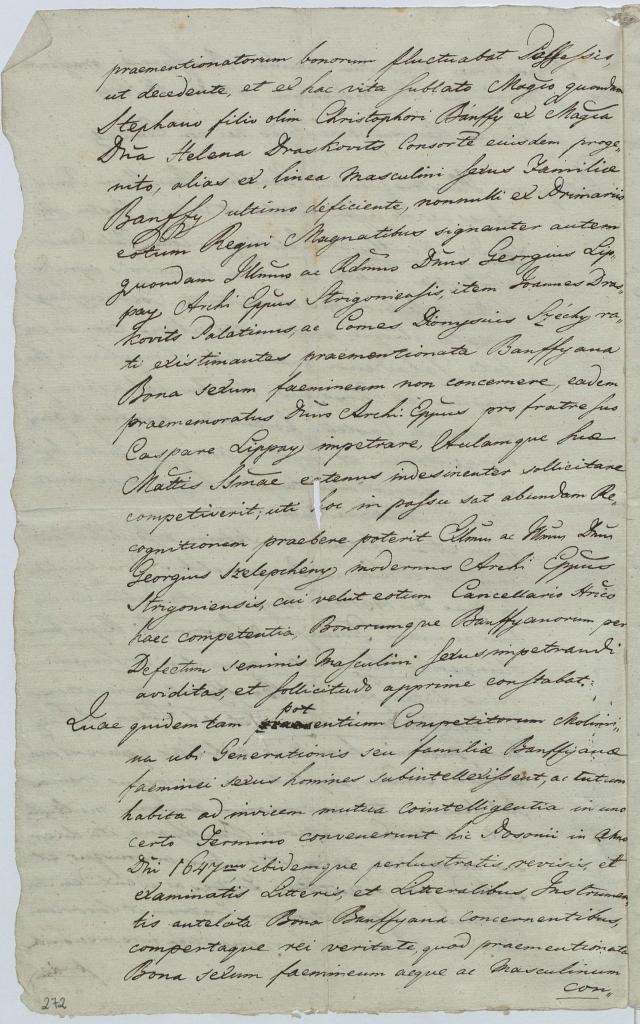 praementionatorum bonorum fluctuabat Possessio,
ut decedente, et ex hac vita sublato Magco quondam
Stephano filio olim Christophori Banffy ex Magca
Dna Helena Draskovits Consorte eiusdem proge„
nito, alias ex linea Masculini sexus Familiae
Banffy ultimo deficiente, nonnulli ex Primariis
eotum Regni Magnatibus signanter autem
quondam Illmus ac Rdmus Dnus Georgius Lip„
pay Archi Eppus Strigoniensis, item Joannes Dras„
kovits Palatinus, ac Comes Dionysius Széchy ra„
ti existimantes, praementionata Banffyana
Bona sexum faemineum non concernere, eadem
praememoratus Dnus Archi Eppus pro fratre suo
Caspare Lippay impetrare, Aulamque suae
Mattis Ssmae eatenus indesinenter sollicitare
competiverit; uti hoc in passu sat abundam Re„
cognitionem praebere poterit Cslmus ac Rdmus Dnus
Georgius Szelepchény modernus Archi Eppus
Strigoniensis, cui velut eotum Cancellario Aulico
haec competentia, Bonorumque Banffyanorum per
Defectum seminis Masculini sexus impetrandi
aviditas, et sollicitudo apprime constabat.
Quae quidem tam potentium Competitorum Molimi„
na ubi Generationis seu familiae Banffyanae
faeminei sexus homines subintellexissent, ac tutum
habita ad invicem mutua cointelligentia in uno
certo Termino convenerunt hic Posonii in Anno
Dni 1647mo ibidemque perlustratis, revisis, et
examinatis Litteris, et Litteralibus Instrumen„
tis antelata Bona Banffyana concernentibus,
compertaque rei veritate, quod praementionata
Bona sexum faemineum aeque ac Masculinum
con„
272